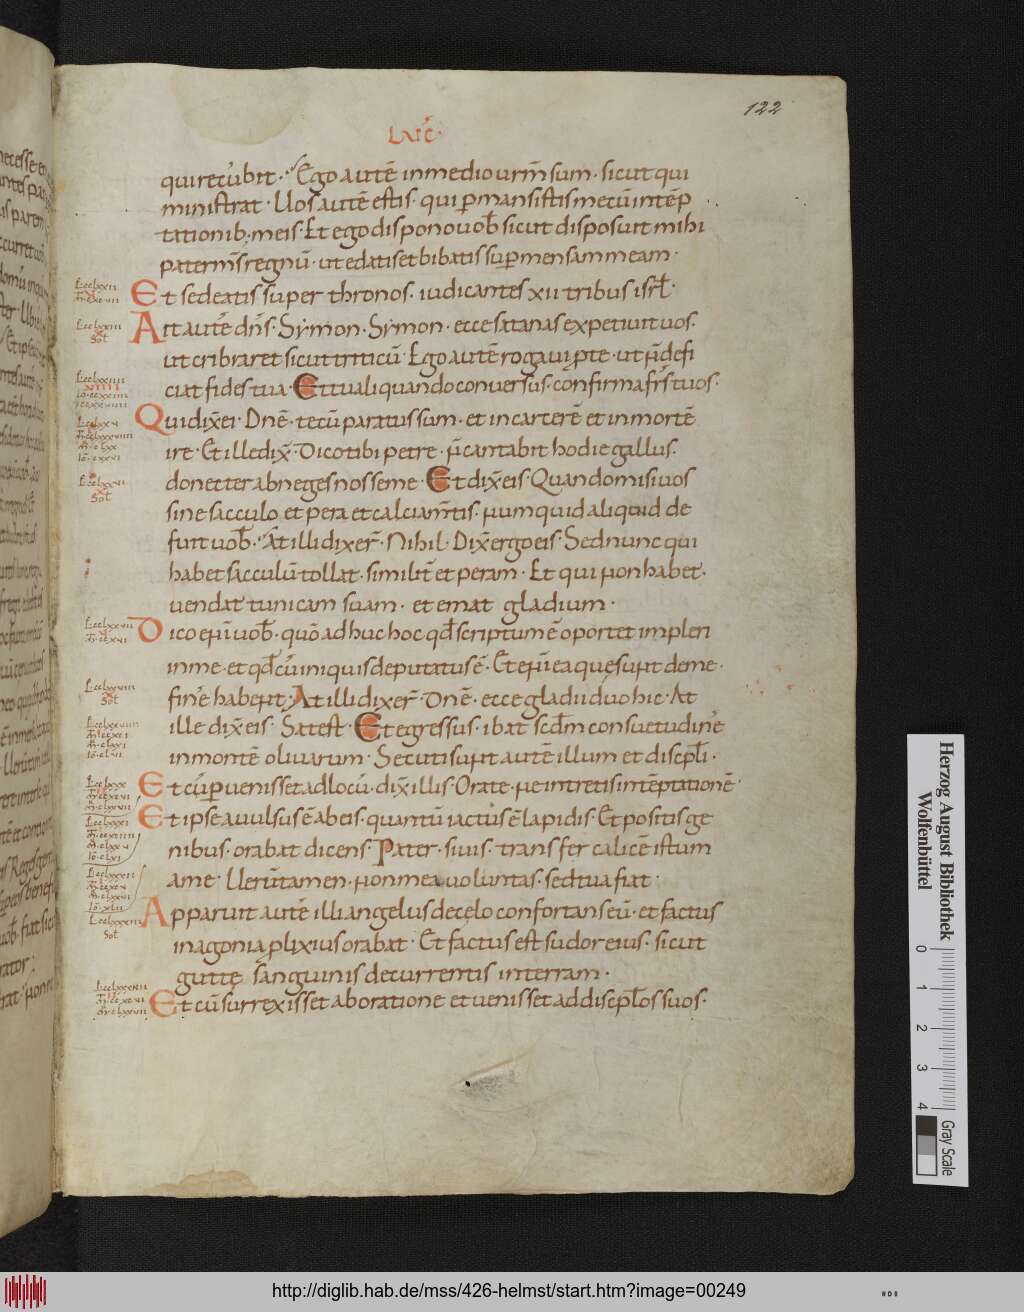 122
LUC̄
qui recūbit · Ego autē in medio urm̄ sum · sicut qui
ministrat · Uos autē estis · qui pmansistis mecū intēp
tationib; meis · Et ego dispono uob̄ sicut disposuit mihi
pater m̄s regnū · ut edatis et bibatis sup mensam meam ·
Et sedeatis super thronos · iudicantes xii tribus isrl̄ ·
Ait autē dn̄s · Symon · Symon · ecce satanas expetiuit uos ·
ut cribraret sicut triticū · Ego autē rogaui p te · ut n̄ defi
ciat fides tua · Et tu aliquando conuersus · confirma frs̄ tuos ·
Qui dix̄ ei · Dn̄e · tecū paratus sum · et in carcerē et in mortē
ire · Et ille dix̄ · Dico tibi petre · n̄ cantabit hodie gallus ·
donec ter abneges nosse me · Et dix̄ eis · Quando misi uos
sine sacculo et pera et calciam̄tis · numquid aliquid de
fuit uob̄ · At illi dixer̄ · Nihil · Dix̄ ergo eis · Sed nunc qui
habet sacculū tollat · similit̄ et peram · Et qui non habet ·
uendat tunicam suam · et emat gladium ·
Dico enī uob̄ · quō adhuc hoc qd̄ scriptum ē oportet impleri
in me · et qd̄ cū iniquis deputatus ē · Et enī ea quę sunt de me ·
finē habent · At illi dixer̄ · Dn̄e · ecce gladii duo hic · At
ille dix̄ eis · Sat est · Et egressus · ibat scdm̄ consuetudinē
in montē oliuarum · Secuti sunt autē illum et discpl̄i ·
Et cū puenisset ad locū · dix̄ illis · Orate · ne intretis intēptationē ·
Et ipse auulsus ē ab eis · quantū iactus ē lapidis · Et positis ge
nibus · orabat dicens · Pater · si uis · transfer calicē istum
a me · Uerūtamen · non mea uoluntas · sed tua fiat ·
Apparuit autē illi angelus de cęlo confortans eū · et factus
in agonia plixius orabat · Et factus est sudor eius · sicut
guttę sanguinis decurrentis in terram ·
Et cū surrexisset ab oratione et uenisset ad discplos suos ·
Herzog August Bibliothek
Wolfenbüttel
0 1 2 3 4
Gray Scale
http://diglib.hab.de/mss/426-helmst/start.htm?image=00249